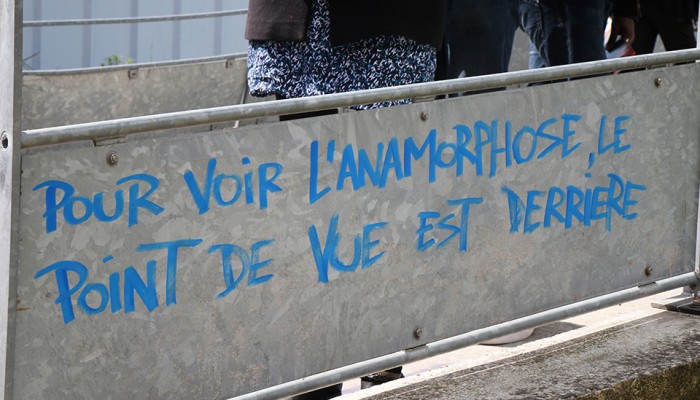 POUR VOIR L'ANAMORPHOSE, LE
POINT DE VUE EST DERRIÈRE